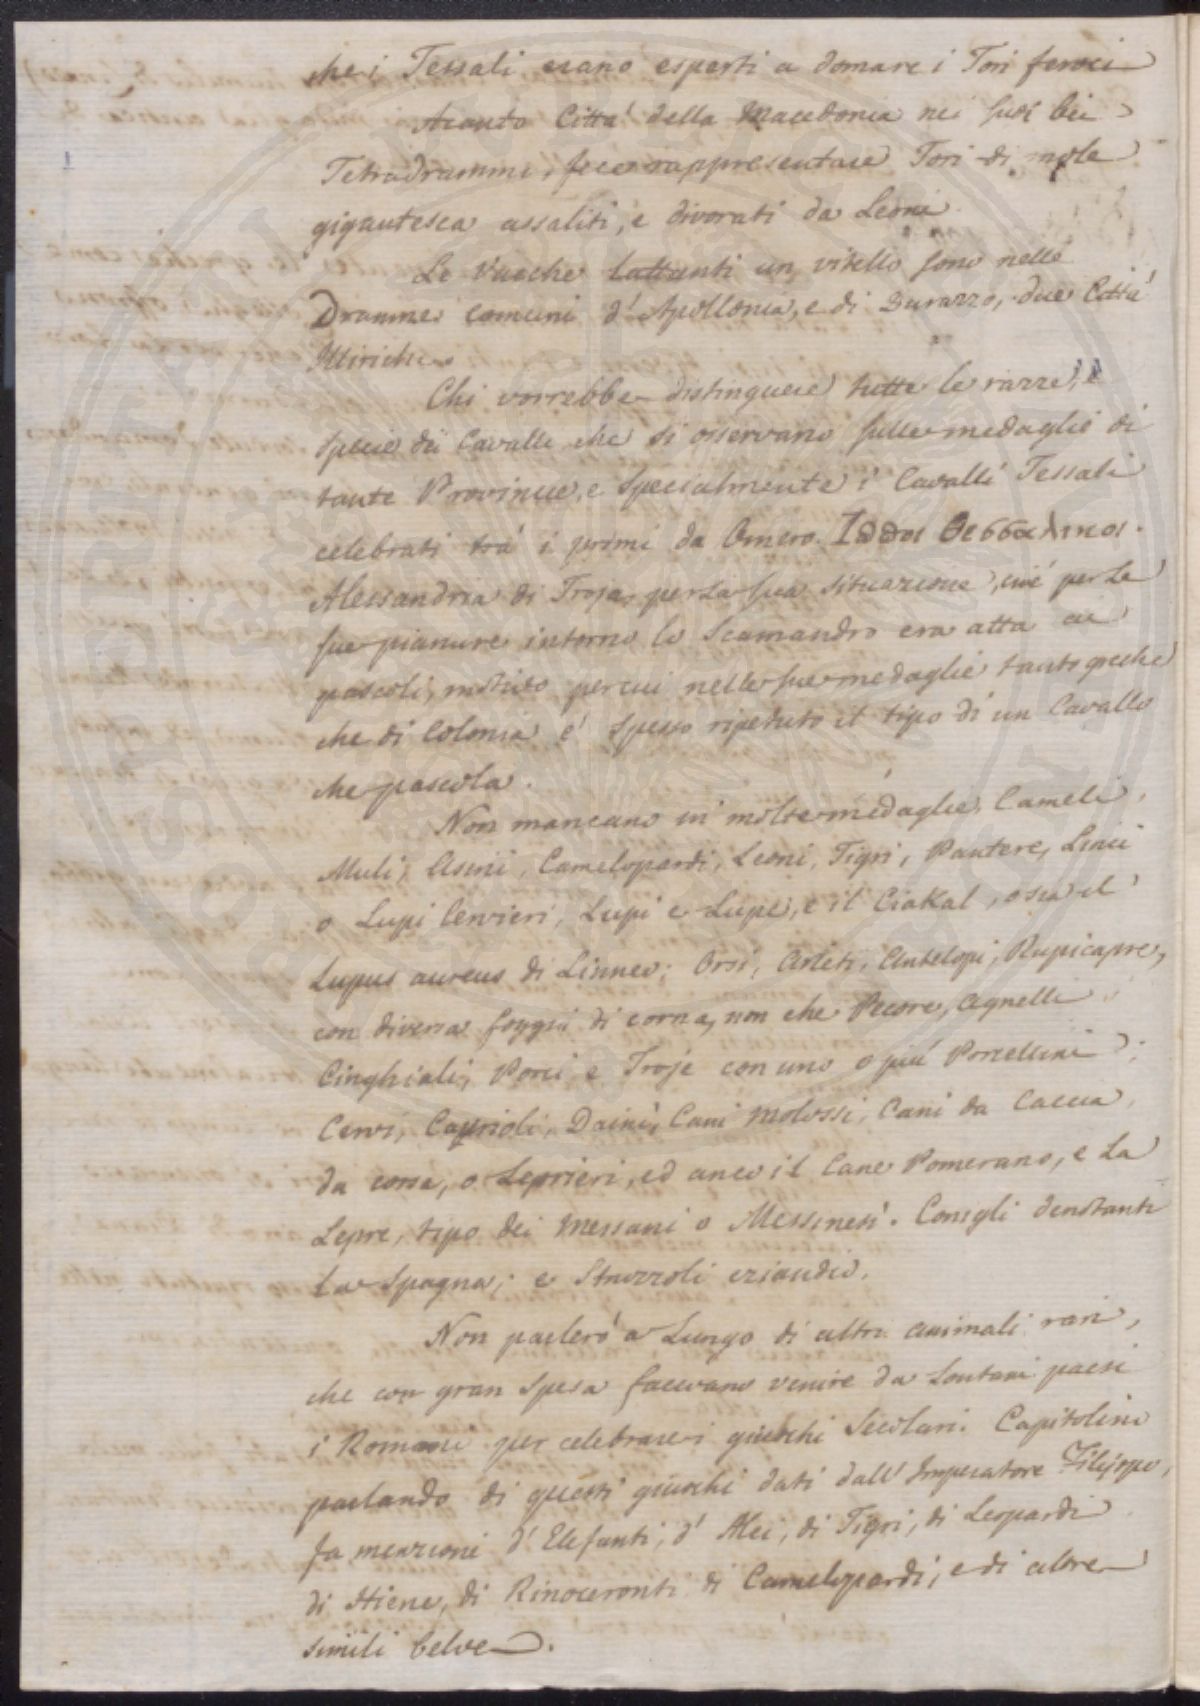 che i Tessali erano esperti a domare i Tori feroci
Acanto Città della Macedonia nei suoi bei
Tetradrammi, fece rappresentare Tori di mole
gigantesca assaliti, e divorati da Leoni.
Le Vacche lattanti un vitello sono nelle
Dramme comuni d'Apollonia, e di Durazzo, due Città
Illiriche.
Chi vorrebbe distinguere tutte le razze, e
specie di Cavalli che si osservano sulle medaglie di
tante Provincie, e specialmente i Cavalli Tessali
celebrati trà i primi da Omero.
Alessandria di Troja, per la sua situazione, cioè per le
sue pianure intorno lo Scamandro era atta ai
pascoli, motivo per cui nelle sue medaglie tanto greche
che di Colonia è spesso ripetuto il tipo di un Cavallo
che pascola.
Non mancano in molte medaglie, Cameli,
Muli, Asini, Camelopardi, Leoni, Tigri, Pantere, Linci
o Lupi Cervieri, Lupi e Lupe, e il Ciakal, o sia il
Lupus aureus di Linneo; Orsi, Arieti, Antelopi, Rupicapre,
con diversa foggia di corna, non che Pecore, Agnelli
Cinghiali, Porci e Troje con uno o più Porcellini;
Cervi, Caprioli, Daini, Cani Molossi, Cani da Caccia,
da corsa, o Leprieri, ed anco il Cane Pomerano, e la
Lepre, tipo dei Messani o Messinesi. Conigli denotanti
la Spagna; e Struzzoli eziandio.
Non parlerò a lungo di altri animali rari,
che con gran spesa facevano venire da lontani paesi
i Romani per celebrare i giuochi Secolari. Capitolino
parlando di questi giuochi dati dall'Imperatore Filippo,
fa menzione d'Elefanti, d'Alci, di Tigri, di Leopardi
di Hiene, di Rinoceronti di Camelopardi, e di altre
simili belve.